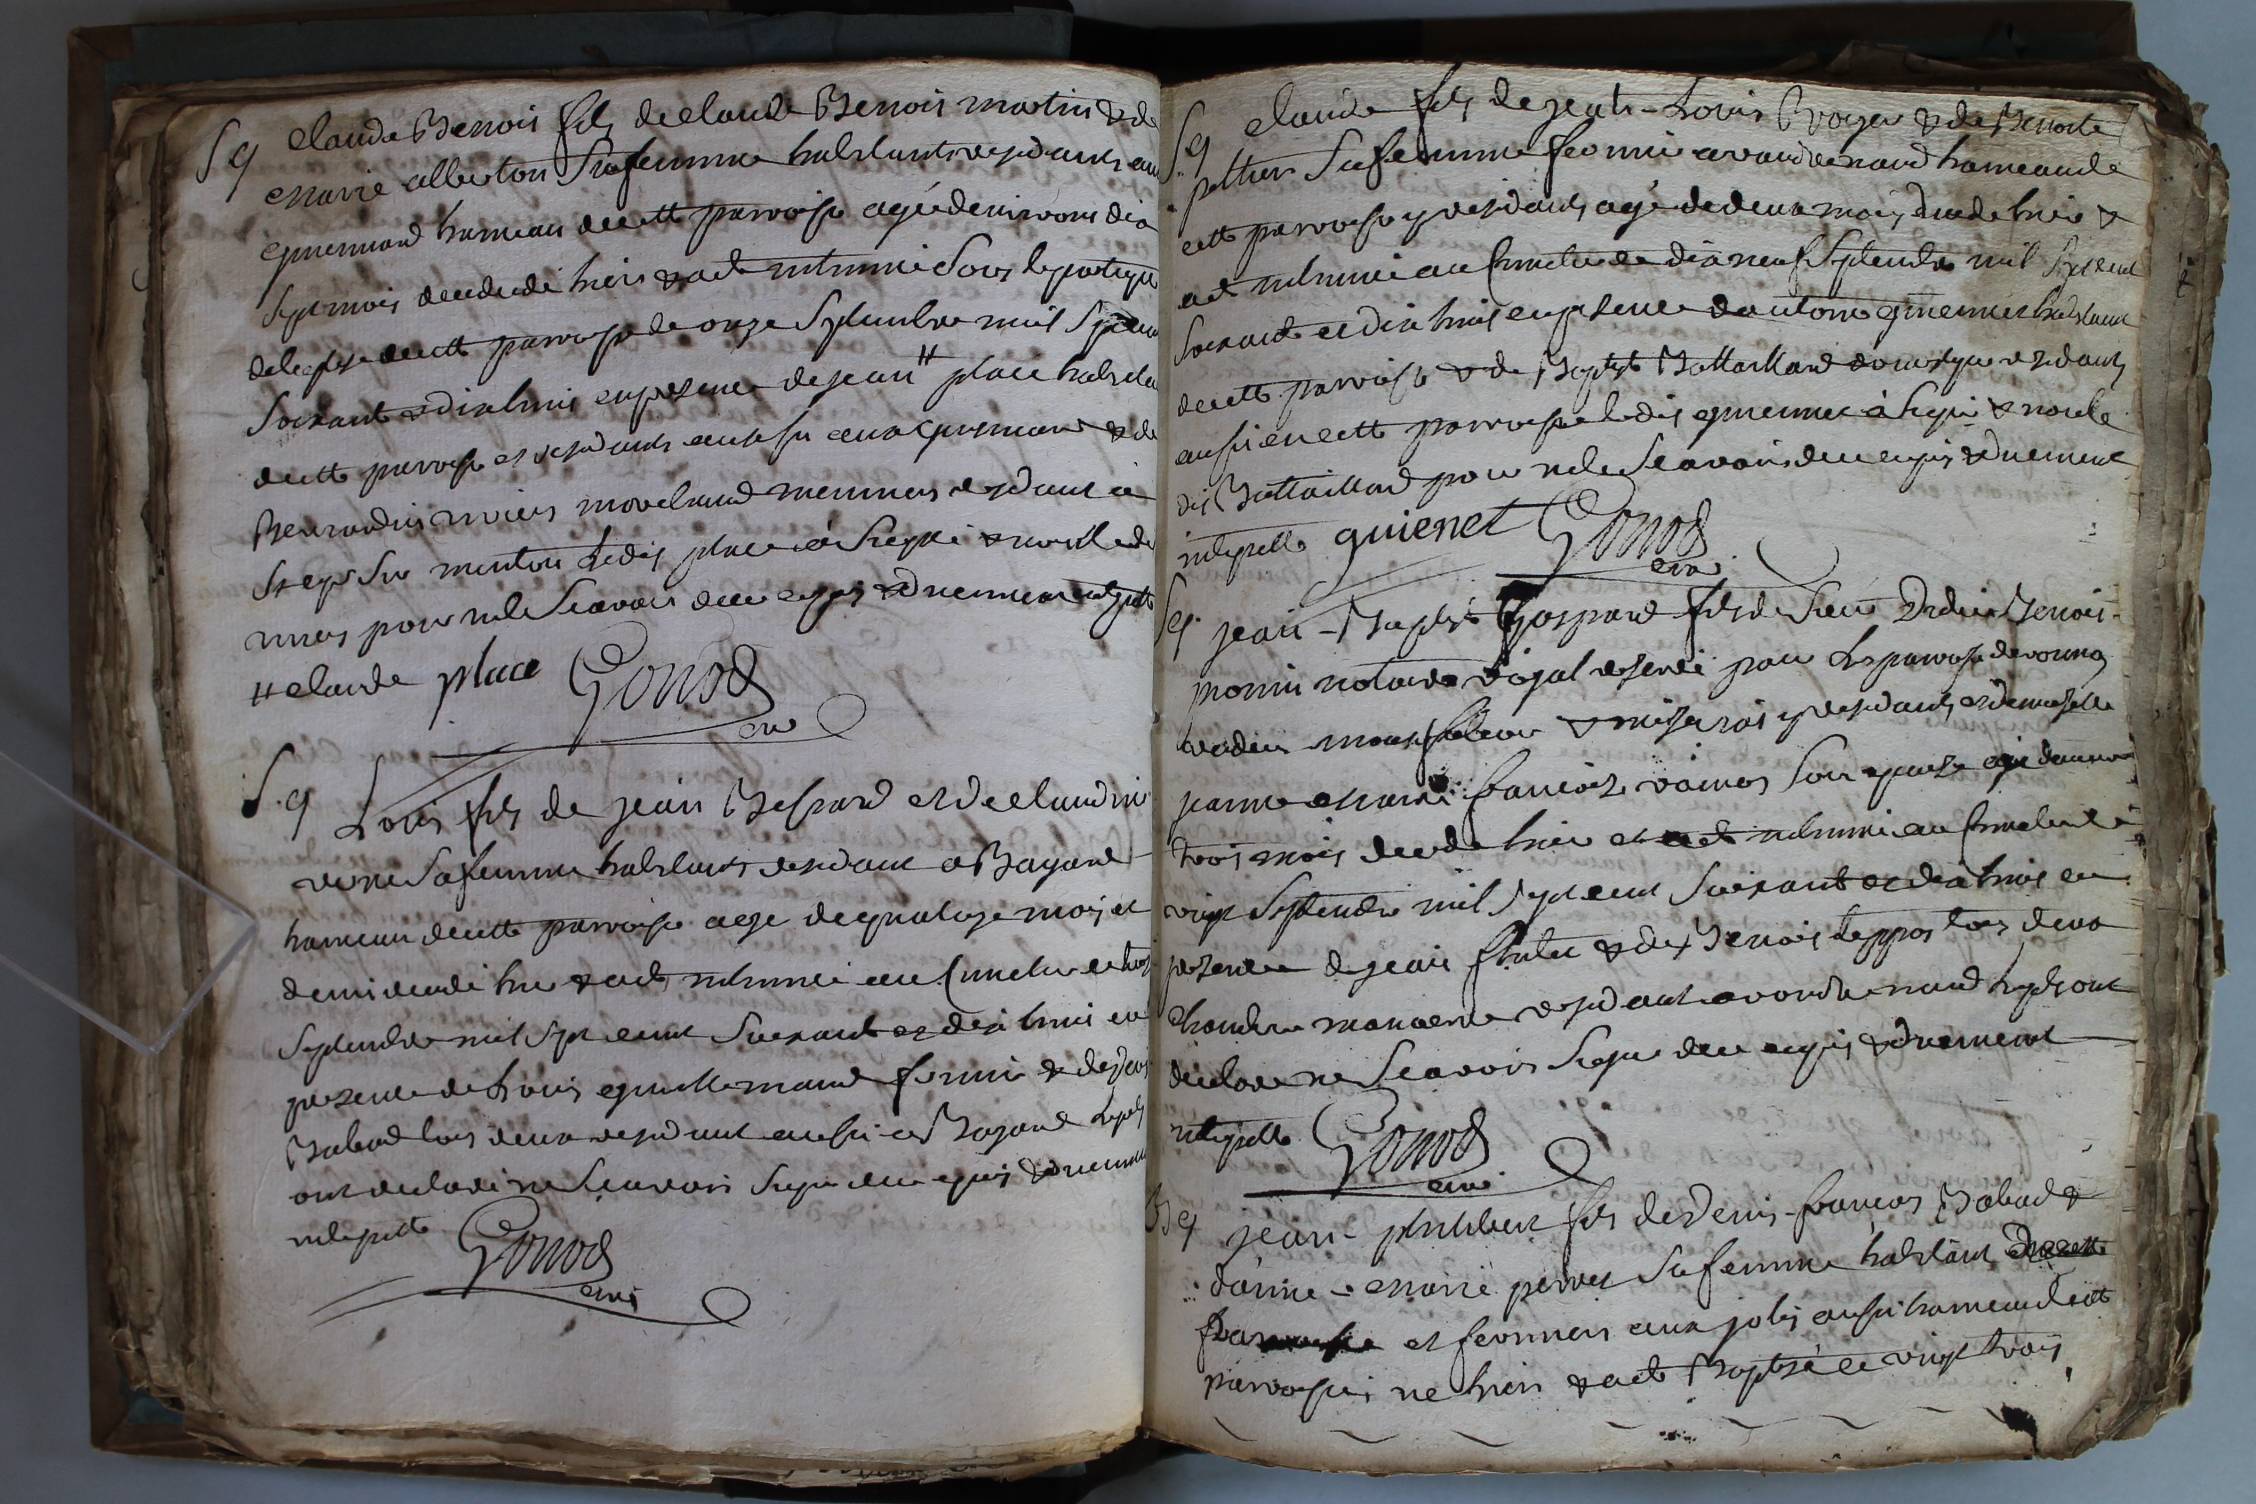 Sg Claude Benois fils de Claude Benois martin & de
marie alberton Sa femme habitants residants au
guennard hameau decette parroisse agé denviron dix
Sept mois decedé hier & a eté inhumé Sous le portique
deleglise decette parroisse le onze Septembre mil Sept cent
Soixante & dix huit en presence de jean # place habitant
decette parroisse et residants aussi aux guennard & de
Bernardin
ledit place à Signé & non le
pour ne le Scavoir de ce enquis & duement interpellé
# claude place Gonod
curé
S.g Louis fils de jean Besson et de claudine
vene Sa femme habitants residant a Bayard
hameau decette parroisse agé de quatorze mois et
demi decedé hier & a eté inhumé au Cimetiere le trois
Septembre mil Sept cent Soixante et dix huit en
presence de Louis guillemaud fermier & de Denis
Babad tous deux residant aussi a Bayard lesquels
ont declaré ne Scavoir Signer de ce enquis & duement
interpellé Gonod
curé
Sg Claude fils de jean-Louis Broyer & de Benoite
Sa femme fermier a vaudrenard hameau de
cette parroisse y residants agé de deux mois decedé hier &
a eté inhumé au Cimetiere le dix neuf Septembre mil Sept cent
Soixante et dix huit en presence dantoine guennet habitant
decette parroisse & de Baptiste Battaillard domestique residants
aussi en cette parroisse ledit guennet à Signé & non le
dit Battaillard pour ne le Scavoir de ce enquis & duement
interpellé guienet Gonod
curé
Sg. jean-Baptiste Gaspard fils de Sieur Didier Benois
monin notaire royal reservé pour les parroisse de vonnas
& mizeriat y residants et demoiselle
jeanne marie françoise Son epouse agé denviron
trois mois decedé hier et a eté inhumé au Cimetiere le
vingt Septembre mil Sept cent Soixante et dix huit en
presence de jean & de Benois tous deux
manoeuvre residant a vaudrenard lesquels ont
declaré ne Scavoir Signer de ce enquis & duement
interpellé Gonod
curé
Bg jean-philibert fils de Denis-françois Babad &
danne-marie perret Sa femme habitant
et fermiers aux jolis aussi hameau decette
parroisse né hier & a eté Baptisé le vingt trois